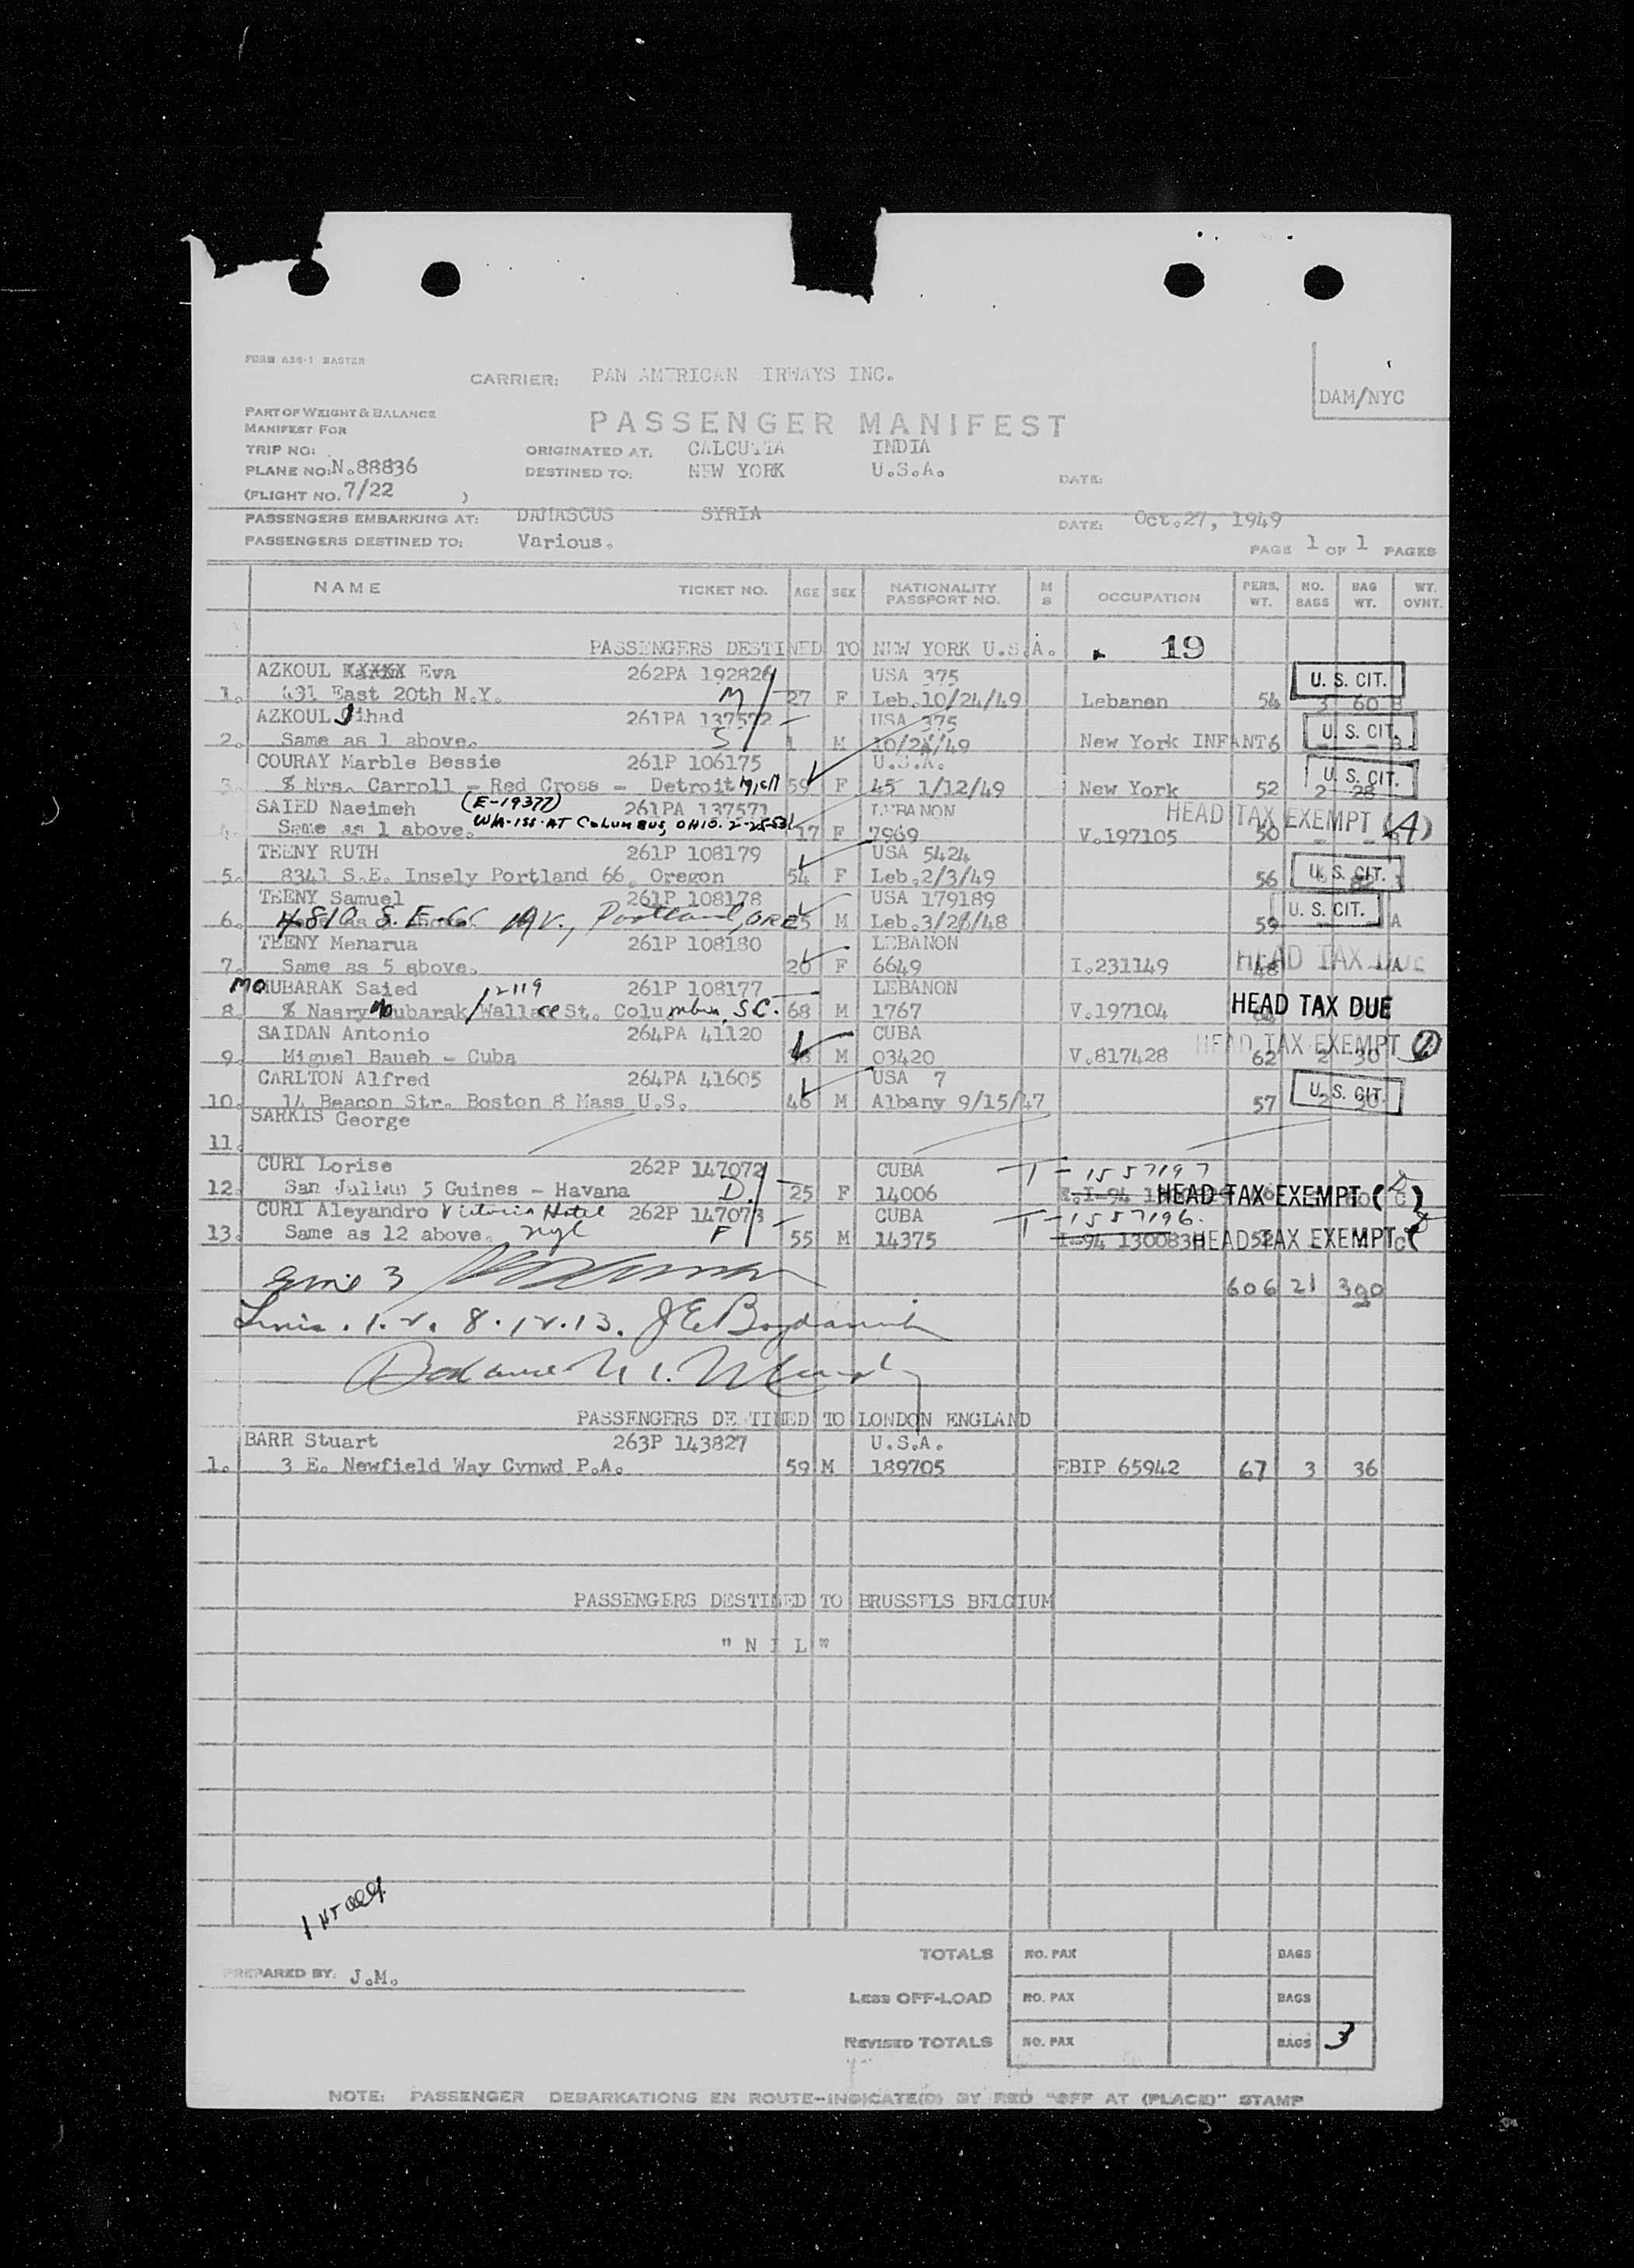 FORM A36-1 MASTER
CARRIER: PAN AMERICAN IRWAYS INC.
DAM/NYC
PART OF WEIGHT & BALANCE
MANIFEST FOR
PASSENGER MANIFEST
TRIP NO:
ORIGINATED AT: CALCUTTA INDIA
PLANE NO: N.88836
DESTINED TO: NEW YORK U.S.A.
DATE:
(FLIGHT NO. 7/22 )
PASSENGERS EMBARKING AT: DAMASCUS SYRIA
DATE: Oct.27, 1949
PASSENGERS DESTINED TO: Various.
PAGE 1 OF 1 PAGES
NAME TICKET NO. AGE SEX NATIONALITY PASSPORT NO. M S OCCUPATION PERS. WT. NO. BAGS BAG WT. WT. OVNT.
PASSENGERS DESTINED TO NEW YORK U.S.A. 19
AZKOUL Eva 262PA 192826 USA 375 U. S. CIT.
1. 431 East 20th N.Y. M 27 F Leb.10/24/49 Lebanen 54 3 60
AZKOUL Jihad 261PA 137572 USA 375 U. S. CIT.
2. Same as 1 above. S 1 M 10/24/49 New York INFANT 6
COURAY Marble Bessie 261P 106175 U.S.A. U. S. CIT.
3. % Mrs. Carroll - Red Cross - Detroit Mich 59 F 45 1/12/49 New York 52 2 28
SAIED Naeimeh (E-19377) 261PA 137571 LEBANON HEAD TAX EXEMPT (A)
4. Same as 1 above. W/A-ISS-AT COLUMBUS, OHIO. 2-25-53 17 F 7969 V.197105 50 - -
TEENY RUTH 261P 108179 USA 5424
5. 8341 S.E. Insely Portland 66, Oregon 54 F Leb.2/3/49 56 U. S. CIT.
TEENY Samuel 261P 108178 USA 179189 U. S. CIT.
6. S. E. 66 AV., Portland, ORE 25 M Leb.3/26/48 59 A
TEENY Menarua 261P 108180 LEBANON HEAD TAX DUE
7. Same as 5 above. 20 F 6649 I.231149 48 A
MOUBARAK Saied 12119 261P 108177 LEBANON
8. % Nasry Moubarak/Wallace St. Columbia, S.C. 68 M 1767 V.197104 HEAD TAX DUE
SAIDAN Antonio 264PA 41120 CUBA HEAD TAX EXEMPT
9. Miguel Baueb - Cuba M 03420 V.817428 62 2 30
CARLTON Alfred 264PA 41605 USA 7
10. 14 Beacon Str. Boston 8 Mass U.S. 46 M Albany 9/15/47 57 U. S. CIT.
SARKIS George
11.
CURI Lorise 262P 147072 CUBA T-1557197
12. San Julian 5 Guines - Havana D. 25 F 14006 HEAD TAX EXEMPT (C)
CURI Aleyandro Victoria Hotel 262P 147073 CUBA T-1557196.
13. Same as 12 above. nyc F 55 M 14375 I-94 130083 HEAD TAX EXEMPT
606 21 390
1. 2. 8. 12. 13.
PASSENGERS DESTINED TO LONDON ENGLAND
BARR Stuart 263P 143827 U.S.A.
1. 3 E. Newfield Way Cynwd P.A. 59 M 189705 EBIP 65942 67 3 36
PASSENGERS DESTINED TO BRUSSELS BELGIUM
" N I L "
TOTALS NO. PAX BAGS
PREPARED BY: J.M.
LESS OFF-LOAD NO. PAX BAGS
REVISED TOTALS NO. PAX BAGS 3
NOTE: PASSENGER DEBARKATIONS EN ROUTE-INDICATE(D) BY RED "OFF AT (PLACE)" STAMP